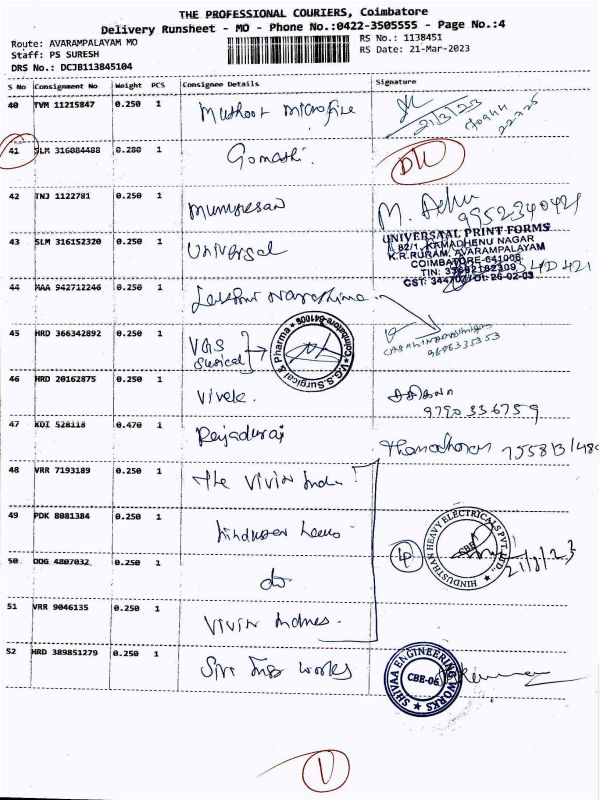 THE PROFESSIONAL COURIERS, Coimbatore
Delivery Runsheet - MO - Phone No.:0422-3505555 - Page No.:4
Route: AVARAMPALAYAM MO
RS No.: 1138451
Staff: PS SURESH
RS Date: 21-Mar-2023
DRS No.: DCJB113845104
S No Consignment No Weight PCS Consignee Details Signature
40 TVM 11215847 0.250 1 Muthoot Microfine
21/3/23
41 SLM 316084488 0.280 1 Gomathi.
42 TNJ 1122781 0.250 1 Murugesan M.
9952340421
43 SLM 316152320 0.250 1 Universal
UNIVERSAAL PRINT FORMS
82/1, KAMADHENU NAGAR
K.R.PURAM, AVARAMPALAYAM
COIMBATORE-641006.
44 MAA 942712246 0.250 1
45 HRD 366342892 0.250 1 VGS
Surgical
V.G.S.Surgical & Pharma * Coimbatore-641006 *
46 HRD 20162875 0.250 1 Vivek.
9790336759
47 KDI 528118 0.470 1 Rajadurai
48 VRR 7193189 0.250 1 The Vivin
49 PDK 8081384 0.250 1
HINDUSTHAN HEAVY ELECTRICALS PVT. LTD.,
CBE
21/3/23
50 ODG 4807032 0.250 1 do
51 VRR 9046135 0.250 1 Vivin
52 HRD 389851279 0.250 1 works
SHIVAA ENGINEERING WORKS
CBE-06